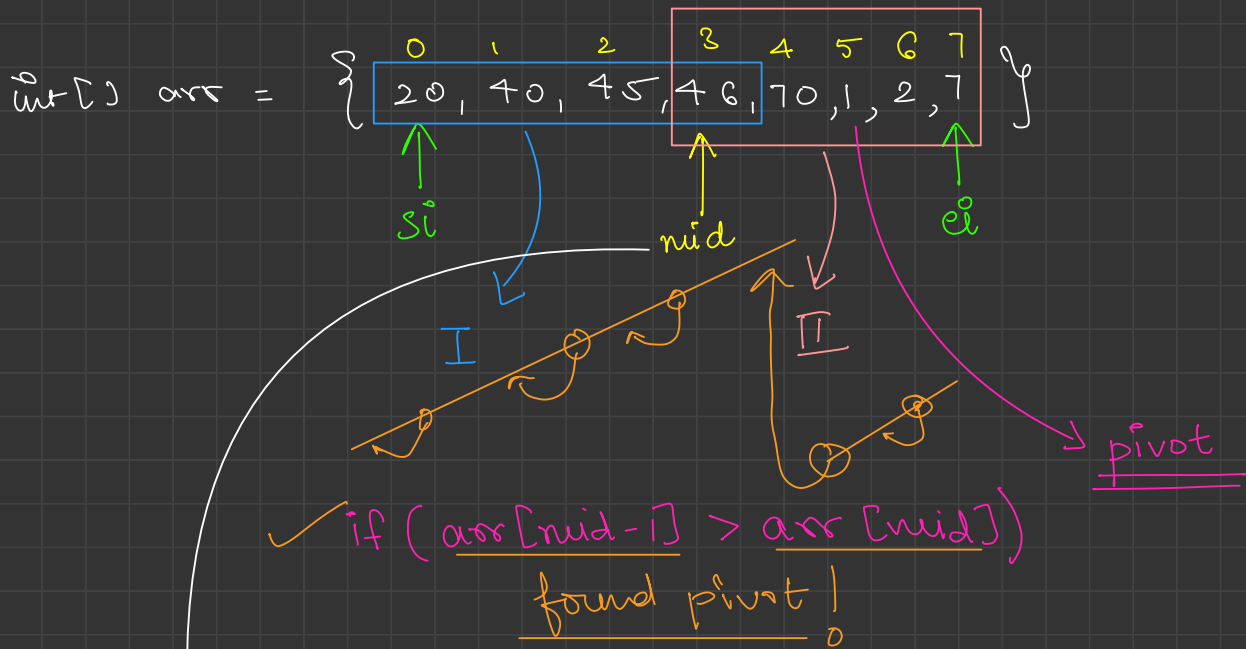 0 1 2 3 4 5 6 7
int[] arr = { 20, 40, 45, 46, 70, 1, 2, 7 }
si mid ei
I II
pivot
if (arr[mid-1] > arr[mid])
found pivot!